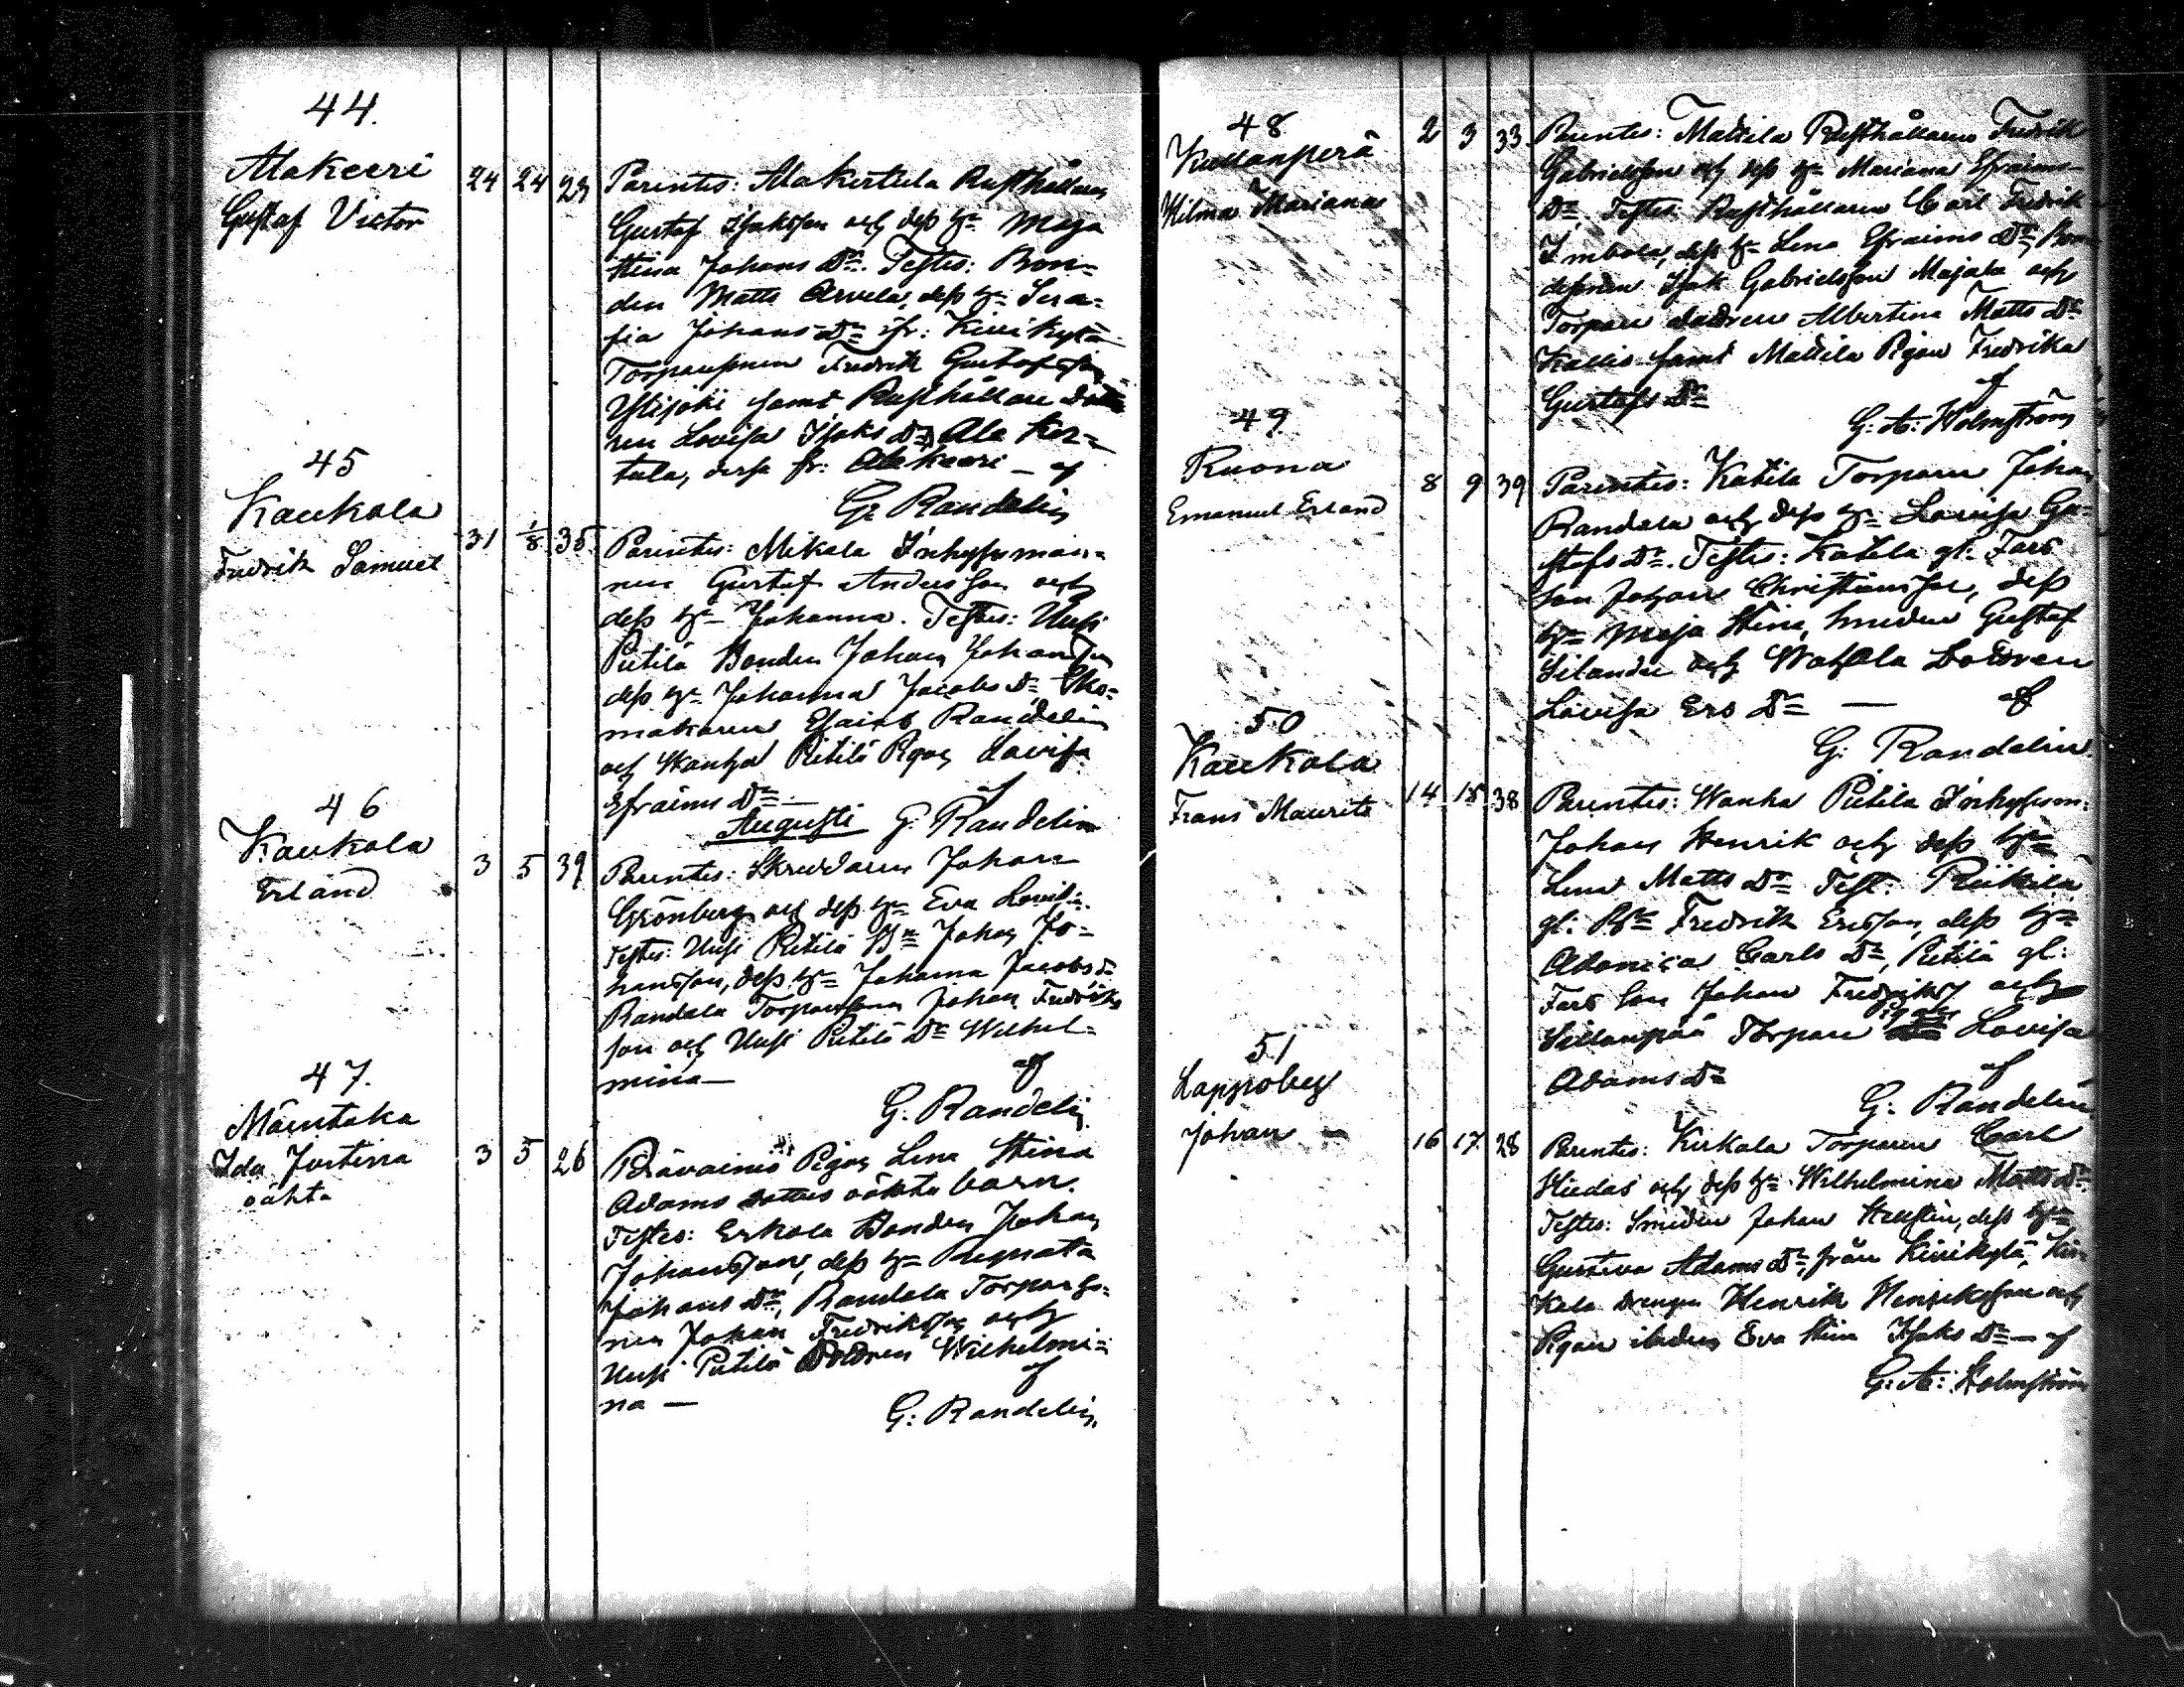 44.
Alakeeri
Gustaf Victor
24 24 23 Parentes: Alakertula Rusthållaren
Gustaf Isaksson och dess h:u Maja
Stina Johans Dr. Testes: Bon=
den Matts Arvela, dess h:u Sera=
fia Johans Dr ifr: Kivikylä
Torparesonen Fredrik Gustafsson
Ylisjoki samt Rusthållare Dotte
ren Lovisa Isaks Dr, Ala Ker=
tula, fr: Alakeeri — af
G: Randelin
45
Kaukola
Fredrik Samuel
31 1/8 35 Parentes: Mikola Inhysesman=
nen Gustaf Andersson och
dess h:u Johanna. Testes: Uusi
Pietilä Bonden Johan Johansson
dess h:u Johanna Jacobs Dr, Sko=
makaren Esaias Randelin
och Wanha Pietilä Pigan Lovisa
Efraims Dr — af
Augusti G: Randelin
46
Kaukola
Erland
3 5 39 Parentes: Skreddaren Johan
Grönberg och dess h:u Eva Lovisa.
Testes: Uusi Pietilä Bn Johan Jo=
hansson, dess h:u Johanna Jacobs Dr
Randala Torparesonen Johan Fredriks
son och Uusi Pietilä Dr Wilhel=
mina — af
G. Randelin
47.
Mäentaka
Ida Justina
oäkta
3 5 26 Pigan Lena Stina
Adams dotters oäkta barn.
Testes: Erkola Bonden Johan
Johansson, dess h:u Regnata
Johans Dr, Randala Torpareso=
nen Johan Fredriksson och
Uusi Pietilä Dottren Wilhelmi=
na — af
G: Randelin
48
Kullanperä
Hilma Mariana
2 3 33 Parentes: Mattila Rusthållaren Fredrik
Gabrielsson och dess h:u Mariana Efraims
Dr Testes Rusthållaren Carl Fredrik
Imbola, dess h:u Lena Efraims Dr, Bon
desonen Isak Gabrielsson Majala och
Torpare dottren Albertina Matts Dr
Kallio samt Mattila Pigan Fredrika
Gustafs Dr af
G. A: Holmström
49.
Ruona
Emanuel Erland
8 9 39 Parentes: Katila Torparen Johan
Randala och dess h:u Lovisa Gu=
stafs Dr. Testes: Katila gl: Fars
Son Johan Christiansson, dess
h:u Maja Stina, Smeden Gustaf
Silander och Wahala Dottren
Lovisa Ers Dr — af
G: Randelin
50
Kaukola
Frans Maurits
14 18 38 Parentes: Wanha Pietilä Inhysesm:
Johan Henrik och dess h:u
Lena Matts Dr Test: Riikilä
gl: Fredrik Ersson, dess h:u
Adamica Carls Dr, Pietilä gl:
Fars Son Johan Fredrikss och
Sillanpää Torpare Pigan Lovisa
Adams Dr af
G: Randelin
51
Lappobey
Johan
16 17 28 Parentes: Kirkala Torparen Carl
Hiedas och dess h:u Wilhelmina Matts Dr
Testes: Smeden Johan Hellstén, dess h:u
Gustava Adams Dr, från Kivikylä, Kir=
kala Drengen Henrik Henriksson och
Pigan ibidem Eva Stina Isaks Dr — af
G: A: Holmström